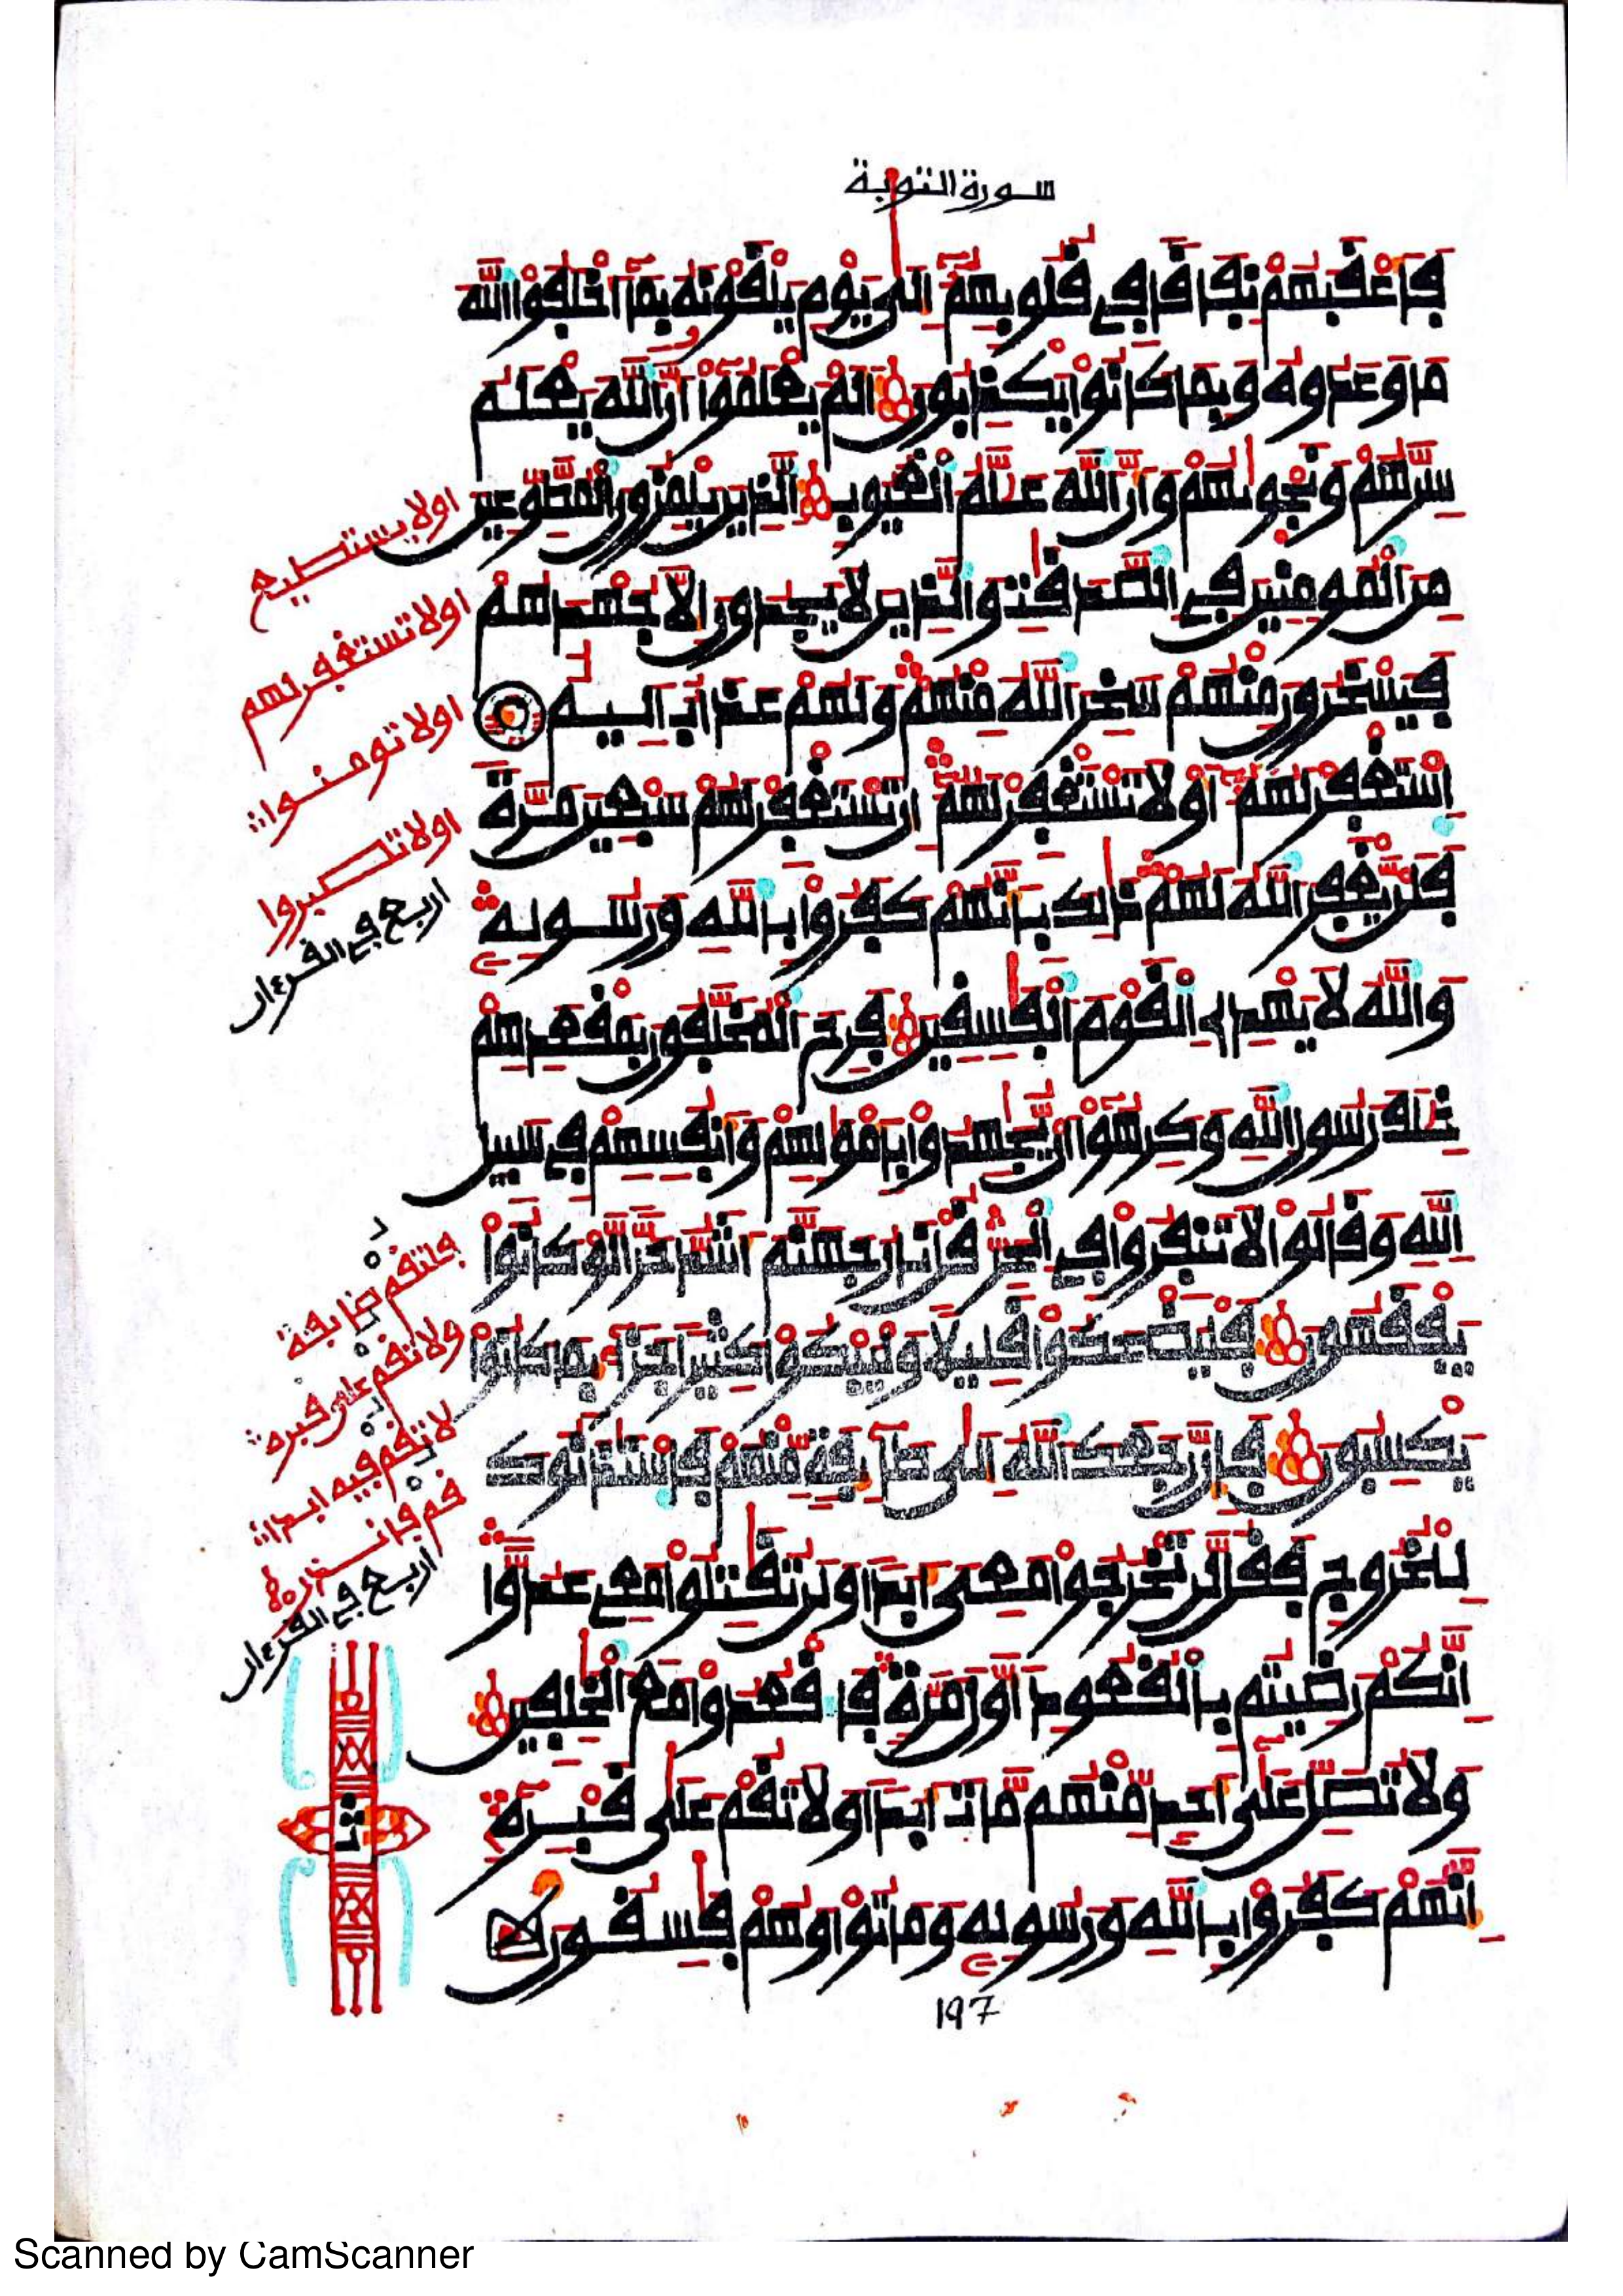 سورة التوبة
فَأَعْقَبَهُمْ نِفَاقًا فِي قُلُوبِهِمْ إِلَىٰ يَوْمِ يَلْقَوْنَهُ بِمَا أَخْلَفُوا اللَّهَ
مَا وَعَدُوهُ وَبِمَا كَانُوا يَكْذِبُونَ أَلَمْ يَعْلَمُوا أَنَّ اللَّهَ يَعْلَمُ
سِرَّهُمْ وَنَجْوَىٰهُمْ وَأَنَّ اللَّهَ عَلَّٰمُ الْغُيُوبِ الَّذِينَ يَلْمِزُونَ الْمُطَّوِّعِينَ
مِنَ الْمُومِنِينَ فِي الصَّدَقَٰتِ وَالَّذِينَ لَا يَجِدُونَ إِلَّا جُهْدَهُمْ
فَيَسْخَرُونَ مِنْهُمْ سَخِرَ اللَّهُ مِنْهُمْ وَلَهُمْ عَذَابٌ أَلِيمٌ
اسْتَغْفِرْ لَهُمْ أَوْ لَا تَسْتَغْفِرْ لَهُمْ إِن تَسْتَغْفِرْ لَهُمْ سَبْعِينَ مَرَّةً
فَلَنْ يَّغْفِرَ اللَّهُ لَهُمْ ذَٰلِكَ بِأَنَّهُمْ كَفَرُوا بِاللَّهِ وَرَسُولِهِ
وَاللَّهُ لَا يَهْدِي الْقَوْمَ الْفَٰسِقِينَ فَرِحَ الْمُخَلَّفُونَ بِمَقْعَدِهِمْ
خِلَٰفَ رَسُولِ اللَّهِ وَكَرِهُوا أَنْ يُّجَٰهِدُوا بِأَمْوَٰلِهِمْ وَأَنفُسِهِمْ فِي سَبِيلِ
اللَّهِ وَقَالُوا لَا تَنفِرُوا فِي الْحَرِّ قُلْ نَارُ جَهَنَّمَ أَشَدُّ حَرًّا لَّوْ كَانُوا
يَفْقَهُونَ فَلْيَضْحَكُوا قَلِيلًا وَلْيَبْكُوا كَثِيرًا جَزَاءً بِمَا كَانُوا
يَكْسِبُونَ فَإِن رَّجَعَكَ اللَّهُ إِلَىٰ طَآئِفَةٍ مِّنْهُمْ فَاسْتَٰذَنُوكَ
لِلْخُرُوجِ فَقُل لَّن تَخْرُجُوا مَعِي أَبَدًا وَلَن تُقَٰتِلُوا مَعِي عَدُوًّا
إِنَّكُمْ رَضِيتُم بِالْقُعُودِ أَوَّلَ مَرَّةٍ فَاقْعُدُوا مَعَ الْخَٰلِفِينَ
وَلَا تُصَلِّ عَلَىٰ أَحَدٍ مِّنْهُم مَّاتَ أَبَدًا وَلَا تَقُمْ عَلَىٰ قَبْرِهِ
إِنَّهُمْ كَفَرُوا بِاللَّهِ وَرَسُولِهِ وَمَاتُوا وَهُمْ فَٰسِقُونَ
197
اولا يستطيع
اولا تستغفر لهم
اولا تومنوا
اولا تصبروا
اربع في القرءان
فلتقم طايفة
ولا تقم على قبره
لا تقم فيه ابدا
قم فانذر
اربع في القرءان
ثمن
Scanned by CamScanner